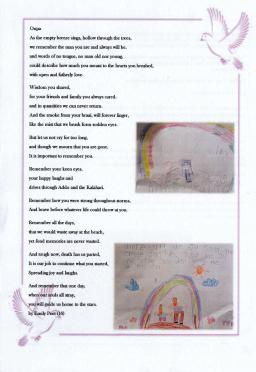 Oupa
As the empty breeze sings, hollow through the trees,
we remember the man you are and always will be.
and words of no tongue, no man old nor young,
could describe how much you meant to the hearts you brushed,
with open and fatherly love.
Wisdom you shared,
for your friends and family you always cared.
and in quantities we can never return.
And the smoke from your braai, will forever linger,
like the mist that we brush from sodden eyes.
But let us not cry for too long,
and though we mourn that you are gone.
It is important to remember you.
Remember your keen eyes,
your happy laughs and
drives through Addo and the Kalahari.
Remember how you were strong throughout storms,
And brave before whatever life could throw at you.
Remember all the days,
that we would waste away at the beach,
yet fond memories are never wasted.
And tough now, death has us parted,
It is our job to continue what you started,
Spreading joy and laughs.
And remember that one day,
when our souls all stray,
you will guide us home to the stars.
by Emily